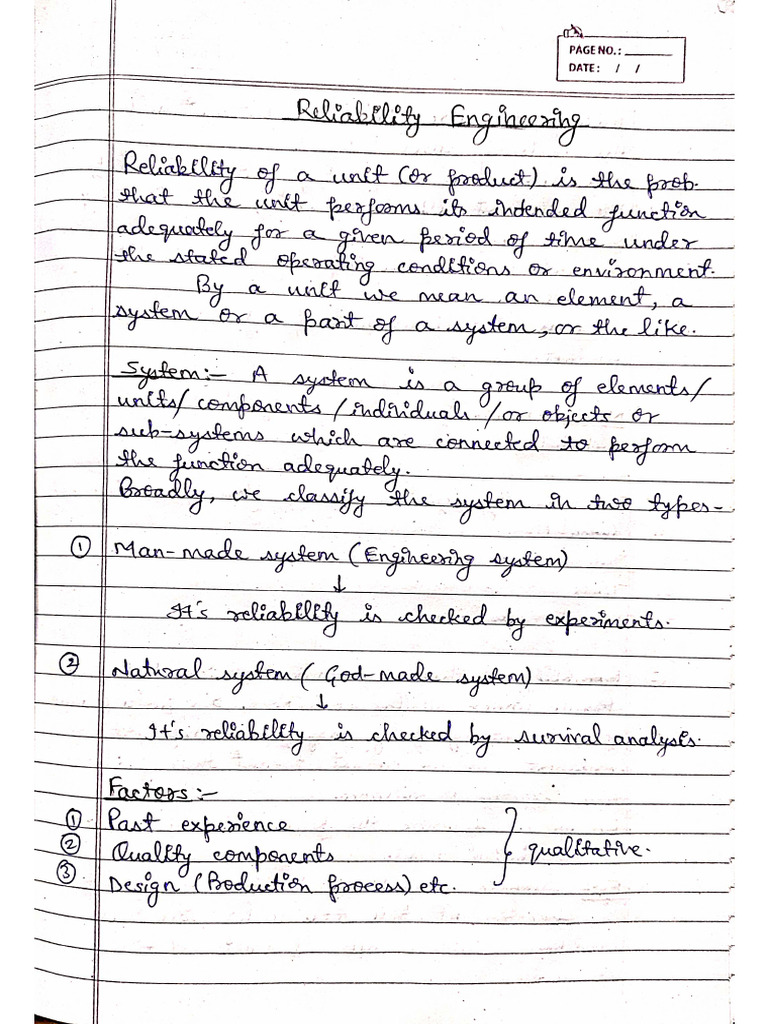 PAGE NO.:
DATE: / /
Reliability Engineering
Reliability of a unit (or product) is the prob.
that the unit performs its intended function
adequately for a given period of time under
the stated operating conditions or environment.
By a unit we mean an element, a
system or a part of a system, or the like.
System:- A system is a group of elements/
units/components/individuals/or objects or
sub-systems which are connected to perform
the function adequately.
Broadly, we classify the system in two types-
① Man-made system (Engineering system)
↓
It's reliability is checked by experiments.
② Natural system ( God-made system)
↓
It's reliability is checked by survival analysis.
Factors:-
① Past experience
② Quality components } qualitative.
③ Design (Production process) etc.